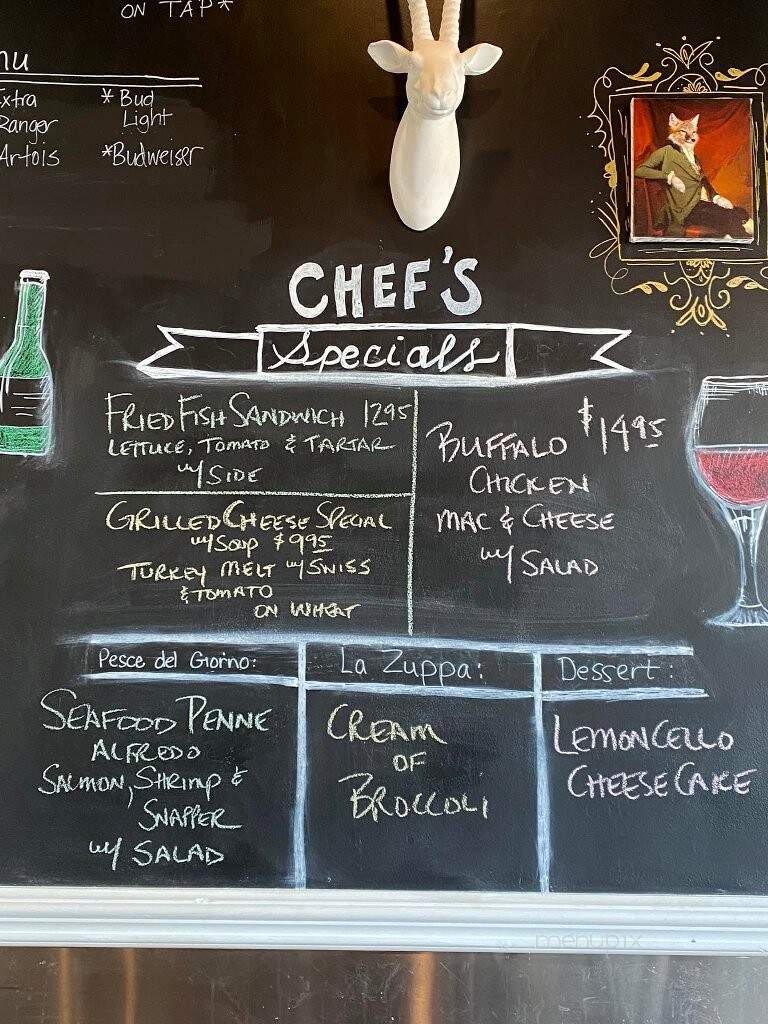 ON TAP*
nu
xtra
Ranger
Artois
* Bud
Light
*Budweiser
CHEF'S
Specials
FRIED FISH SANDWICH 1295
LETTUCE, TOMATO & TARTAR
w/ SIDE
GRILLED CHEESE SPECIAL
w/ SOUP $995
TURKEY MELT w/ SWISS
& TOMATO
ON WHEAT
BUFFALO $1495
CHICKEN
MAC & CHEESE
w/ SALAD
Pesce del Giorno:
SEAFOOD PENNE
ALFREDO
SALMON, SHRIMP &
SNAPPER
w/ SALAD
La Zuppa:
CREAM
OF
BROCCOLI
Dessert:
LEMONCELLO
CHEESE CAKE
menupix